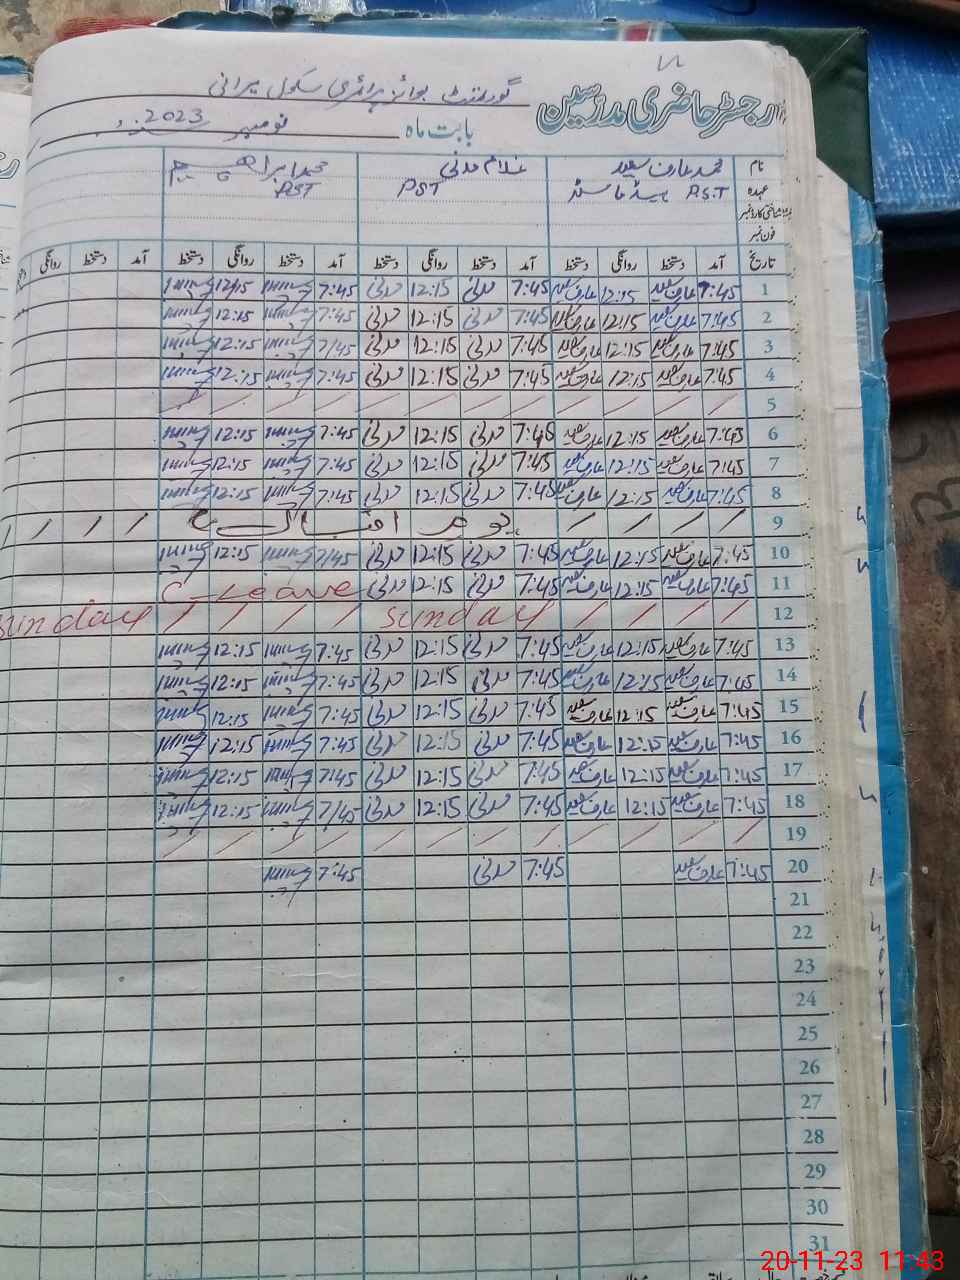 رجسٹر حاضری مدرسین
گورنمنٹ بوائز پرائمری سکول میرانی
بابت ماہ نومبر 2023ء
نام محمد عارف سعید غلام مدنی محمد ابراھیم
عہدہ P.S.T ہیڈ ماسٹر PST PST
شناختی کارڈ نمبر
فون نمبر
تاریخ آمد دستخط روانگی دستخط آمد دستخط روانگی دستخط آمد دستخط روانگی دستخط آمد دستخط روانگی
1 7:45 عارف سعید 12:15 عارف سعید 7:45 مدنی 12:15 مدنی 7:45 12:15
2 7:45 عارف سعید 12:15 عارف سعید 7:45 مدنی 12:15 مدنی 7:45 12:15
3 7:45 عارف سعید 12:15 عارف سعید 7:45 مدنی 12:15 مدنی 7/45 12:15
4 7:45 عارف سعید 12:15 عارف سعید 7:45 مدنی 12:15 مدنی 7:45 12:15
5 / / / / / / / / / / / /
6 7:45 عارف سعید 12:15 عارف سعید 7:45 مدنی 12:15 مدنی 7:45 12:15
7 7:45 عارف سعید 12:15 عارف سعید 7:45 مدنی 12:15 مدنی 7:45 12:15
8 7:45 عارف سعید 12:15 عارف سعید 7:45 مدنی 12:15 مدنی 7:45 12:15
9 / / / / یوم اقبال / / / /
10 7:45 عارف سعید 12:15 عارف سعید 7:45 مدنی 12:15 مدنی 7/45 12:15
11 7:45 عارف سعید 12:15 عارف سعید 7:45 مدنی 12:15 مدنی C-Leave
12 / / / / sunday / / / / sunday
13 7:45 عارف سعید 12:15 عارف سعید 7:45 مدنی 12:15 مدنی 7:45 12:15
14 7:45 عارف سعید 12:15 عارف سعید 7:45 مدنی 12:15 مدنی 7:45 12:15
15 7:45 عارف سعید 12:15 عارف سعید 7:45 مدنی 12:15 مدنی 7:45 12:15
16 7:45 عارف سعید 12:15 عارف سعید 7:45 مدنی 12:15 مدنی 7:45 12:15
17 7:45 عارف سعید 12:15 عارف سعید 7:45 مدنی 12:15 مدنی 7:45 12:15
18 7:45 عارف سعید 12:15 عارف سعید 7:45 مدنی 12:15 مدنی 7/45 12:15
19 / / / / / / / / / / / /
20 7:45 عارف سعید 7:45 مدنی 7:45
21
22
23
24
25
26
27
28
29
30
31
20-11-23 11:43